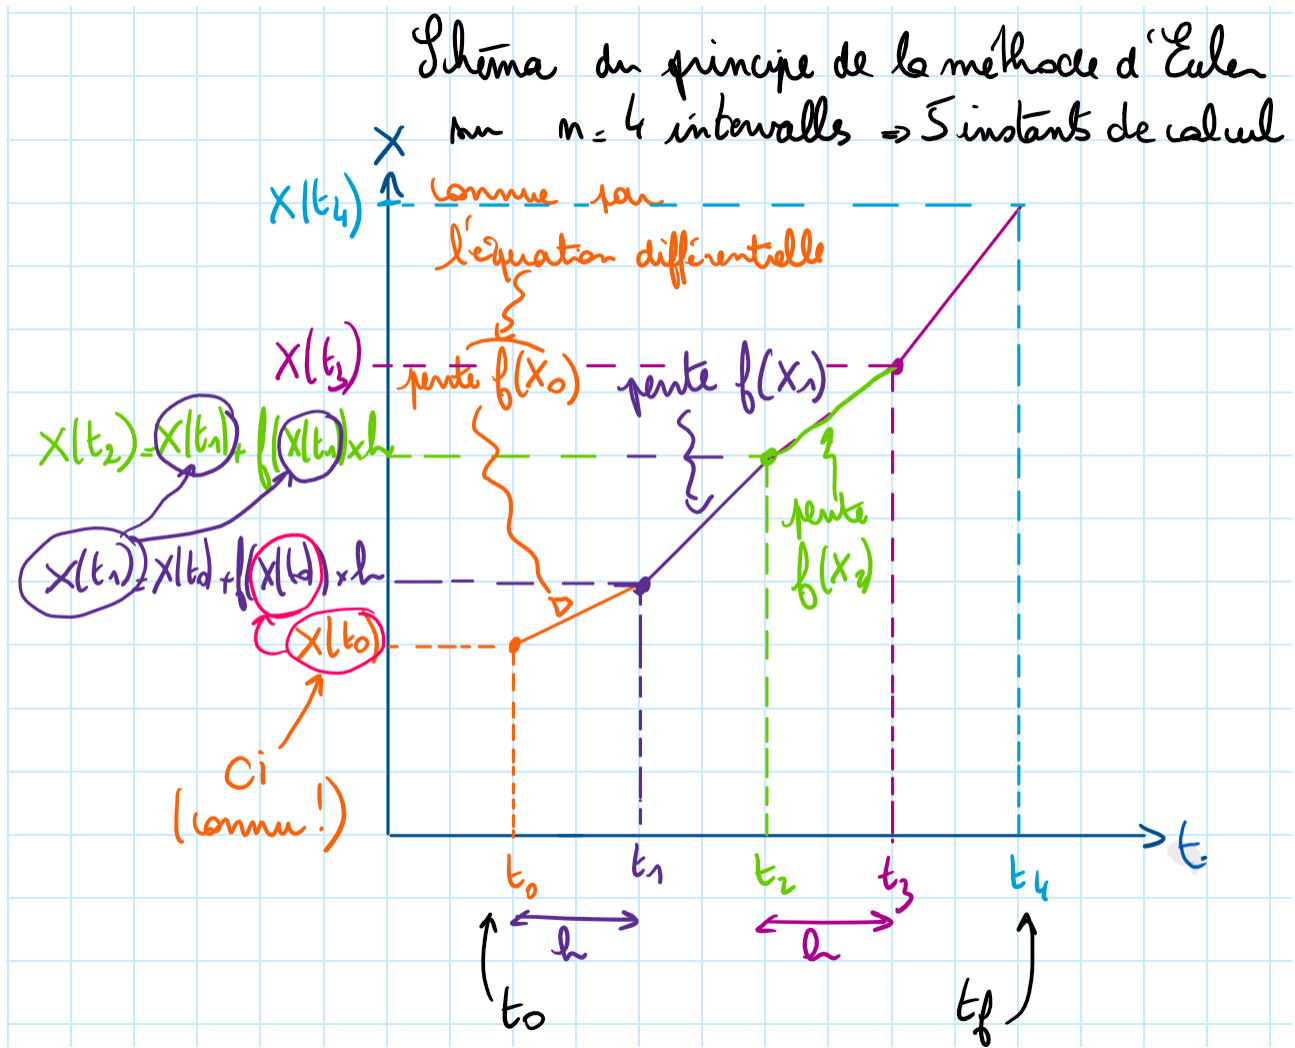 Schéma du principe de la méthode d'Euler
sur n=4 intervalles ⇒ 5 instants de calcul
X
X(t4)
connue par
l'équation différentielle
X(t3)
pente f(X0)
pente f(X1)
X(t2)=X(t1)+f(X(t1))×h
pente
f(X2)
X(t1)=X(t0)+f(X(t0))×h
X(t0)
Ci
(connu!)
t
t0
t1
t2
t3
t4
h
h
t0
tf